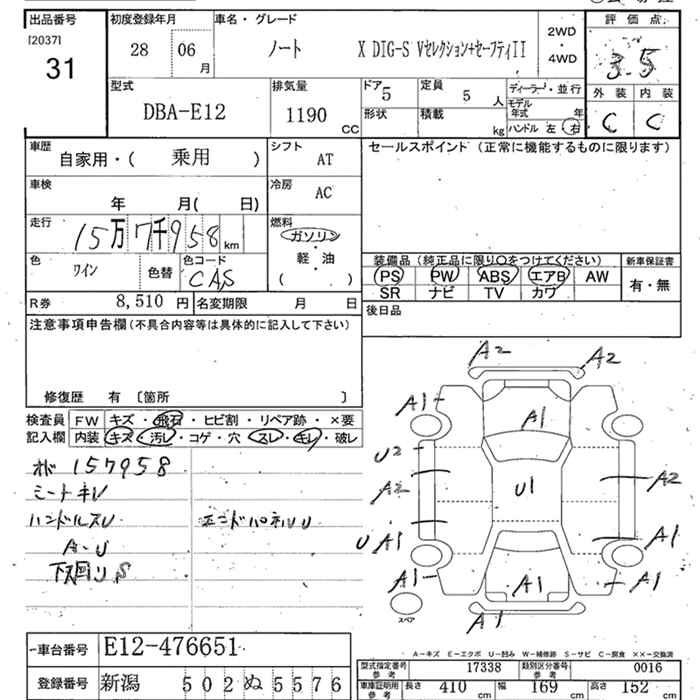 出品番号 初度登録年月 車名・グレード 評価点
[2037] 31
28 06月 ノート X DIG-S Vセレクション+セーフティII 2WD・4WD 3.5
外装 内装
C C
型式 DBA-E12 排気量 1190 CC
ドア 5 定員 5 人 ディーラー・並行
形状 積載 kg モデル年式 年
ハンドル 左 右
車歴 自家用・( 乗用 ) シフト AT
セールスポイント (正常に機能するものに限ります)
車検 年 月( 日) 冷房 AC
走行 15万7千958km 燃料 ガソリン・軽油 ( )
色 ワイン 色替 色コード CAS
装備品 (純正品に限り○をつけてください) 新車保証書
PS PW ABS エアB AW 有・無
SR ナビ TV カワ
R券 8,510 円 名変期限 月 日
後日品
注意事項申告欄 (不具合内容等は具体的に記入して下さい)
修復歴 有 〔箇所 〕
検査員記入欄 FW キズ・飛石・ヒビ割・リペア跡・×要
内装 キズ・汚レ・コゲ・穴・スレ・キレ・破レ
オド 157958
シートキレ
ハンドルスレ エンドパネルU
A・U
下回りS
A2 A2
A1 A1
U2
A2 U1 A2
UA1 A1
A1 A1 A1
A1
スペア
A-キズ E-エクボ U-凹み W-補修跡 S-サビ C-腐食 ××-交換済
車台番号 E12-476651
登録番号 新潟 502 ぬ 5576
型式指定番号 参考 17338 類別区分番号 参考 0016
車庫証明用 参考 長さ 410 cm 幅 169 cm 高さ 152 cm